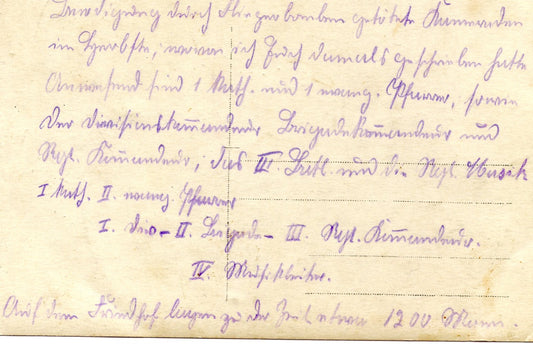 Beerdigung durch Fliegerbomben getötete Kameraden
im Herbste, wovon ich Euch damals geschrieben hatte
Anwesend sind 1 kath. und 1 evang. Pfarrer, sowie
der Divisionskommandeur Brigadekommandeur und
Rgt. Kommandeur, das III. Batl. und die Rgt. Musik
I kath. II. evang. Pfarrer
I. Div.- II. Brigade- III. Rgt. Kommandeur.
IV. Musikleiter.
Auf dem Friedhof liegen zu der Zeit etwa 1200 Mann.